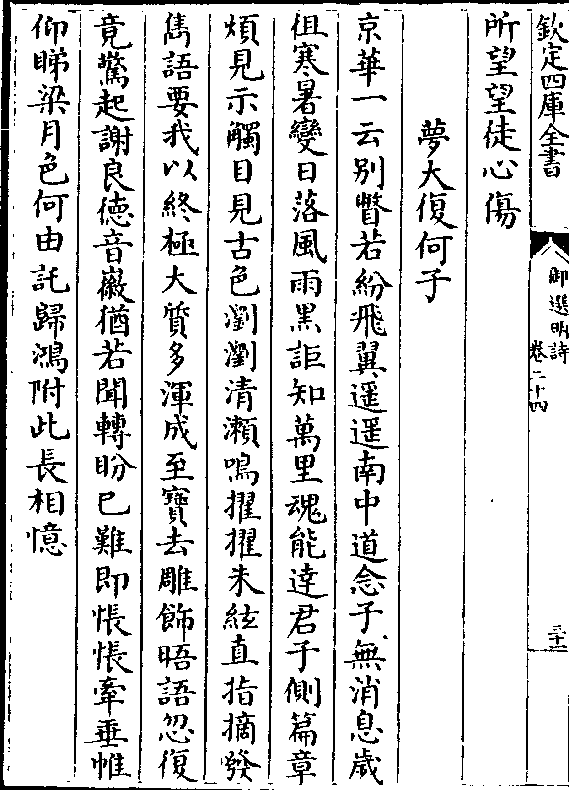 欽定四庫全書
御選明詩
卷二十四
三十一
所望望徒心傷
夢大復何子
京華一云別瞥若紛飛翼遥遥南中道念子無消息歲
徂寒暑變日落風雨黑詎知萬里魂能達君子側篇章
煩見示觸目見古色瀏瀏清瀨鳴擢擢朱絃直指摘發
雋語要我以終極大質多渾成至寳去雕飾晤語忽復
竟驚起謝良德音徽猶若聞轉盼已難即悵悵牽垂帷
仰睇梁月色何由託歸鴻附此長相憶